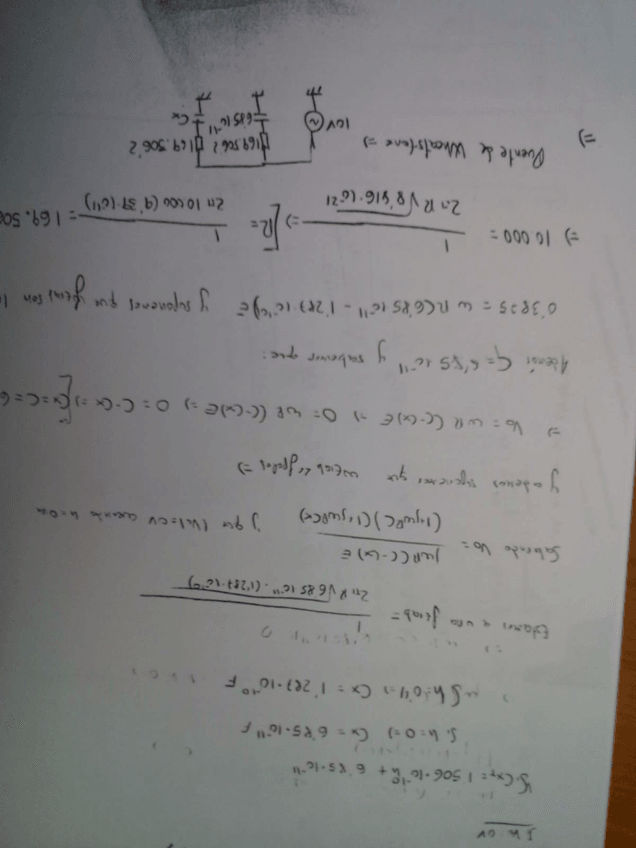 Cx = 1'506·10⁻¹⁰ h + 6'85·10⁻¹¹
Si h=0 => Cx = 6'85·10⁻¹¹ F
Si h=0'4 => Cx = 1'287·10⁻¹⁰ F
Estamos a una ftrab = 1 / (2π R √(6'85·10⁻¹¹ · (1'287·10⁻¹⁰)))
Sabiendo Vo = jωR(C-Cx)E / ((1+jωRC)(1+jωRCx)) y que |Vo|=0V cuando h=0m
y además suponemos que =>
=> Vo = ωR(C-Cx)E => 0 = ωR(C-Cx)E => 0 = C-Cx => Cx=C=6
C = 6'85·10⁻¹¹ y sabemos que:
0'3825 = ωR(6'85·10⁻¹¹ - 1'287·10⁻¹⁰)E y suponemos que son
=> 10.000 = 1 / (2π R √(8'816·10⁻²¹)) => R = 1 / (2π 10.000 (9'39·10⁻¹¹)) = 169.506
=> Puente de Wheatstone =>
10V 169.506'2 169.506'2
6'85·10⁻¹¹ Cx